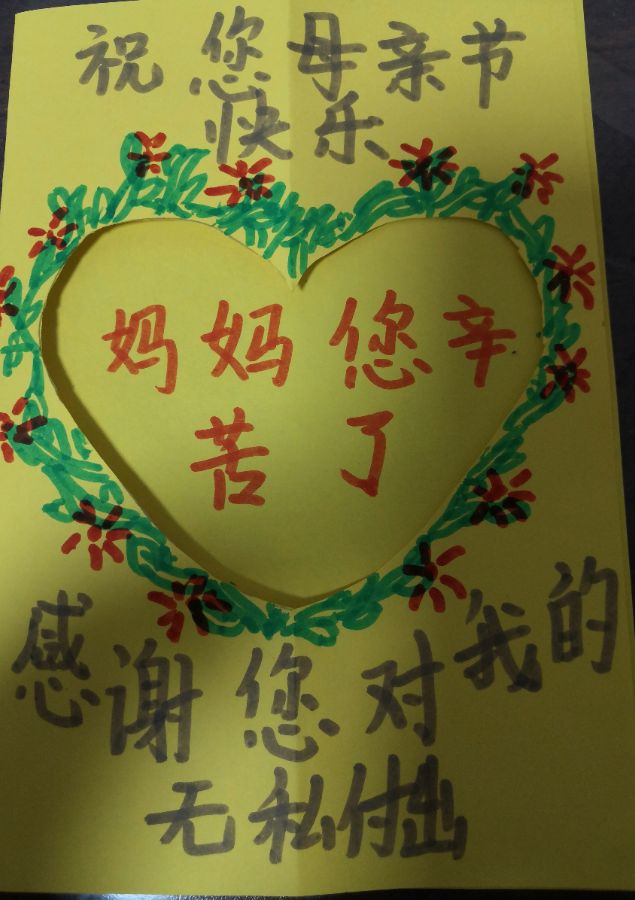 祝您母亲节
快乐
妈妈您辛
苦了
感谢您对我的
无私付出